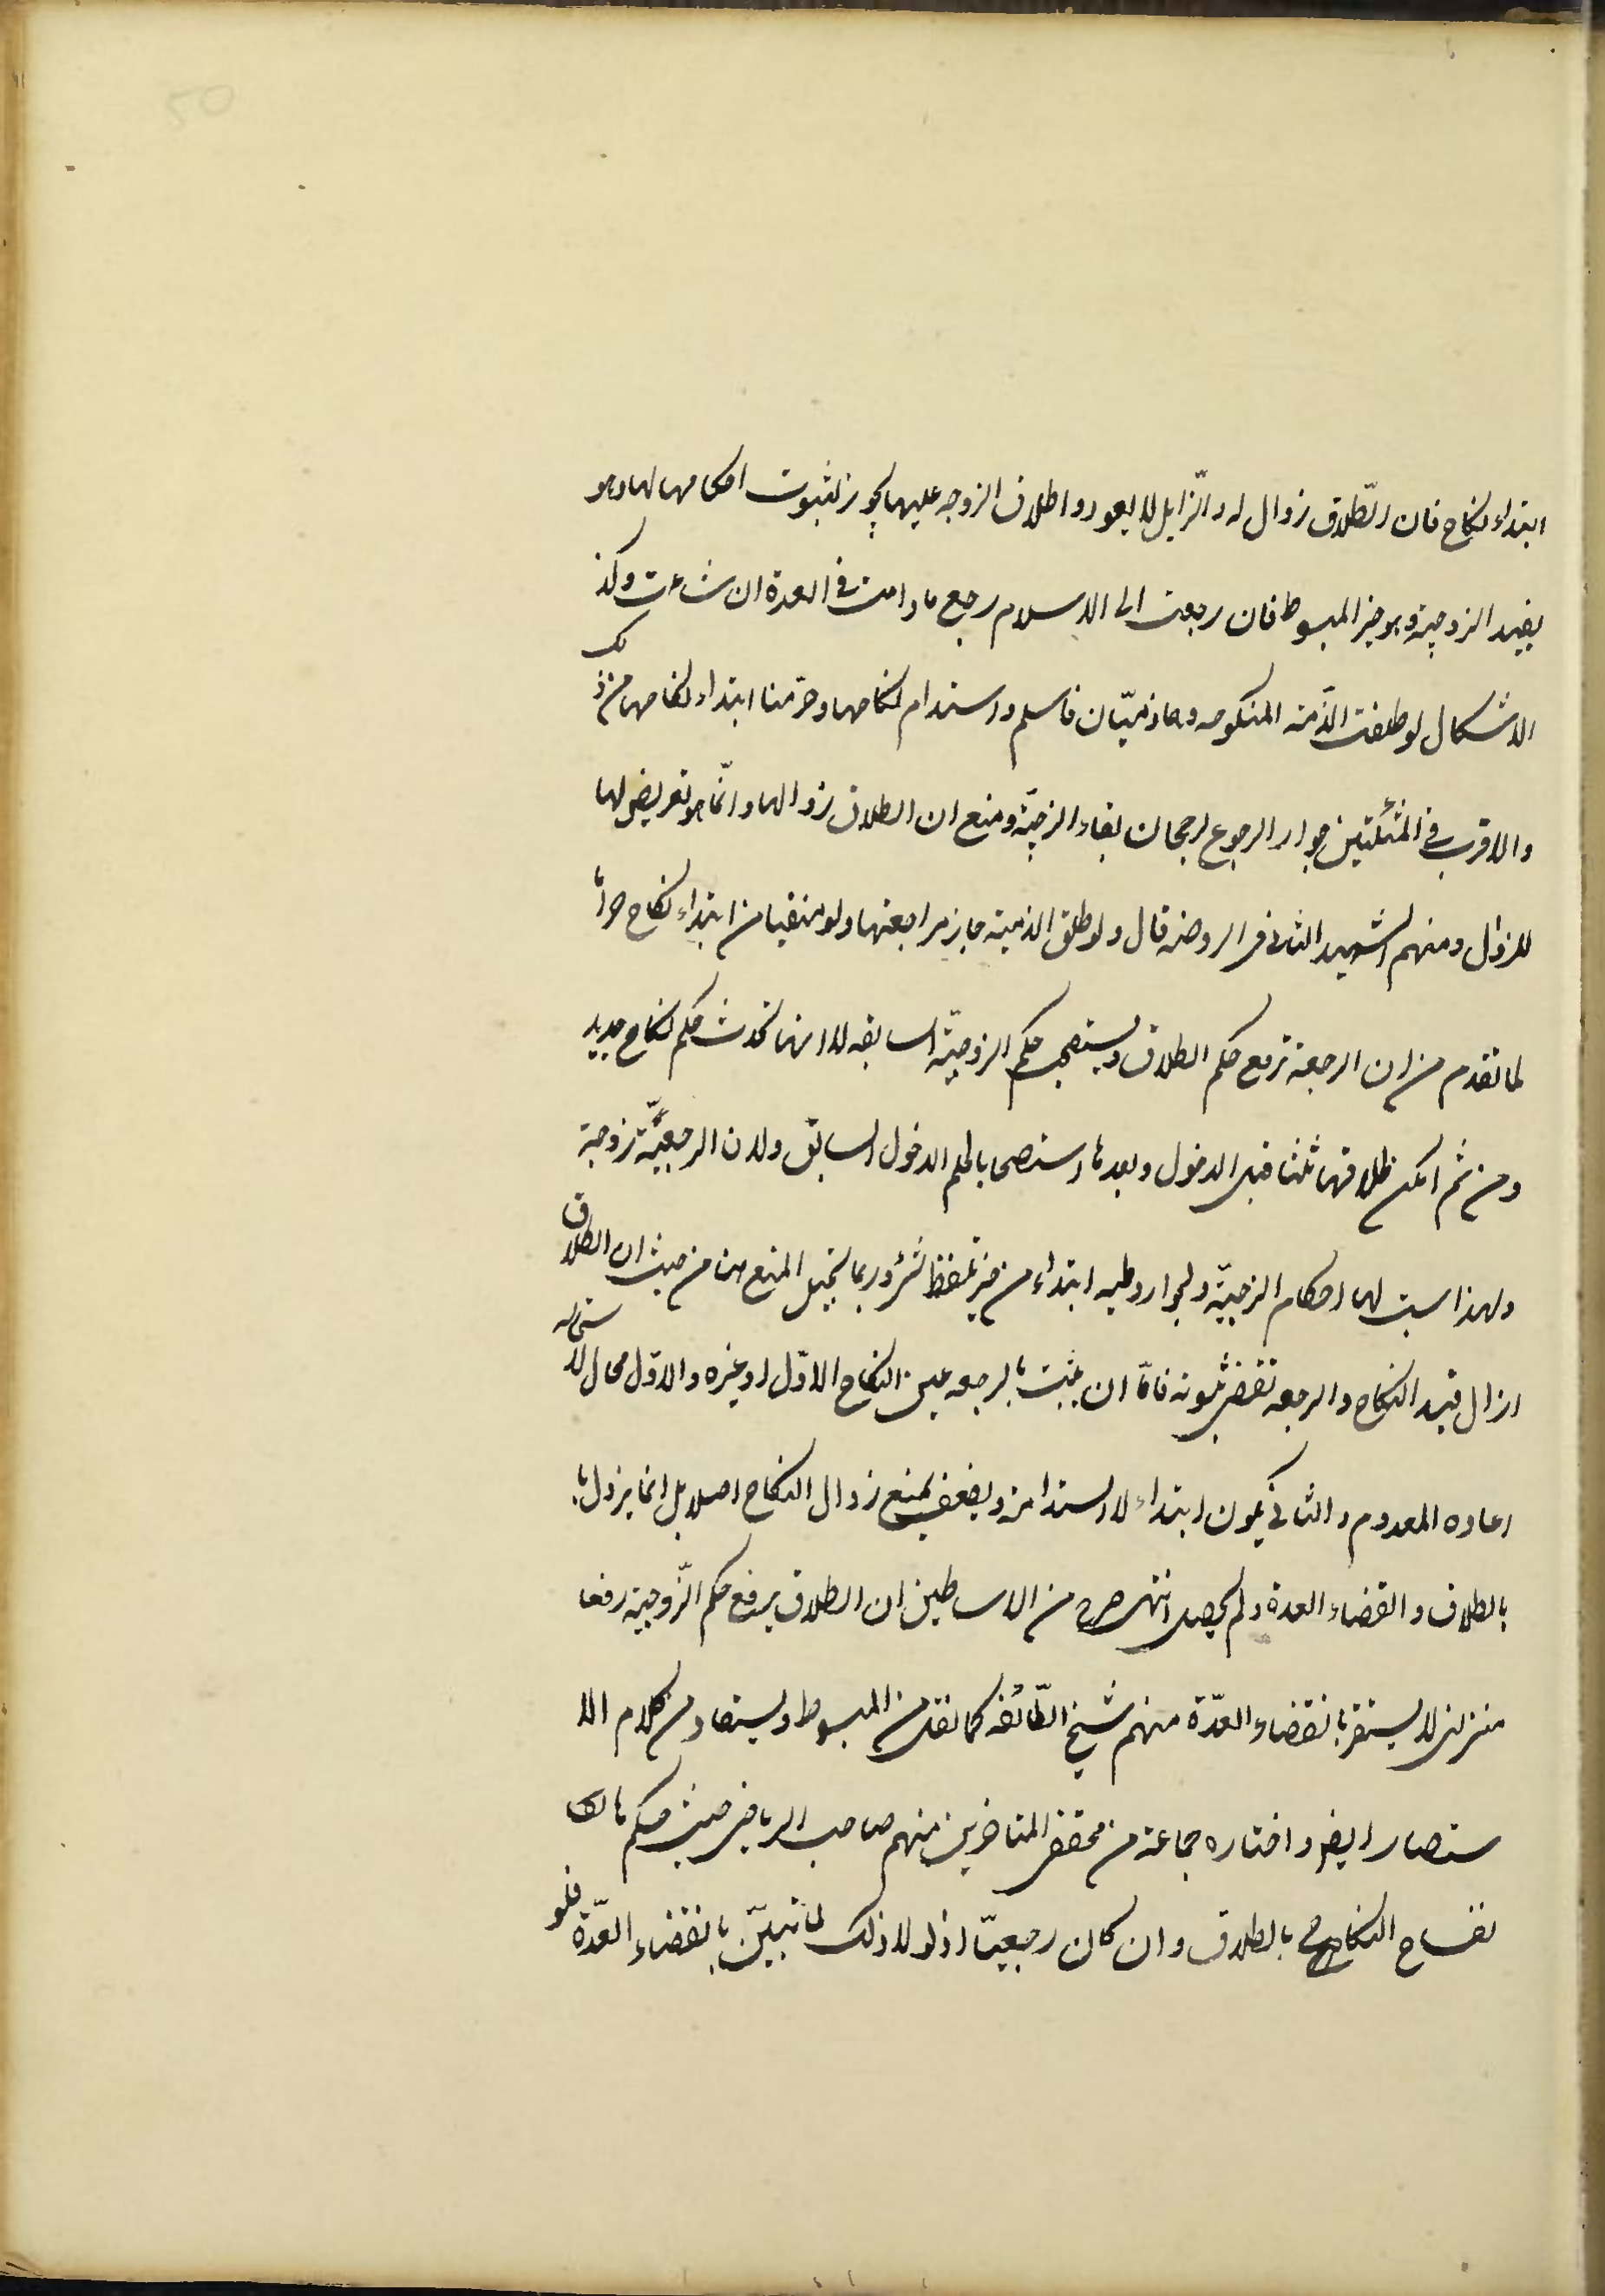 50
ابتداء نكاح فان الطّلاق زوال له و الزّايل لا يعود و اطلاق الزوجه عليها يجوز لثبوت احكامها لها و هو
يفيد الزوجية و هو خيرة المبسوط فان رجعت الى الاسلام رجع ما دامت في العدة ان شاءت و كذ
الاشكال لو طلقت الذّميّه المنكوحه و هما ذميّان فاسلم و استدام نكاحها و حرّمنا ابتداء نكاحها من ذلك
و الاقرب في المسئلتين جواز الرجوع لرجحان بقاء الزوجيّة و منع ان الطلاق زوالها و انّما هو تعريض لها
للزوال و منهم الشهيد الثاني في الروضه قال و لو طلق الذمية جاز مراجعتها و لو منعنا من ابتداء نكاح حرائ
لما تقدم من ان الرجعة ترفع حكم الطلاق و يستصحب حكم الزوجيّة السابقه لا انها تحدث حكم نكاح جديد
و من ثم امكن طلاقها ثلثا قبل الدخول و بعدها استصحابا لحكم الدخول السابق و لان الرجعيّة زوجة
و لهذا يثبت لها احكام الزوجيّة و لجواز وطيه ابتداء من غير تلفظ بشئ و ربما يخيل المنع هنا من حيث ان الطلاق
ازال قيد النكاح و الرجعه تقتضي ثبوته فامّا ان يثبت بالرجعه عين النكاح الاوّل او غيره و الاوّل محال لاستحاله
اعاده المعدوم و الثاني يكون ابتداء لا استدامة و يضعف بمنع زوال النكاح اصلا بل انما يزول با
بالطلاق و انقضاء العدة و لم يحصل انتهى صرح من الاساطين ان الطلاق يرفع حكم الزّوجية رفعا
متزلزلا يستقر بانقضاء العدّة منهم شيخ الطّائفه كما نقل من المبسوط و يستفاد من كلام الا
ستبصار ايضا و اختاره جماعة من محققي المتاخرين منهم صاحب الرياض حيث حكم بان
نفساح النكاح بالطلاق و ان كان رجعيّا اذ لو لا ذلك لما تبيّن بانقضاء العدّة فلو